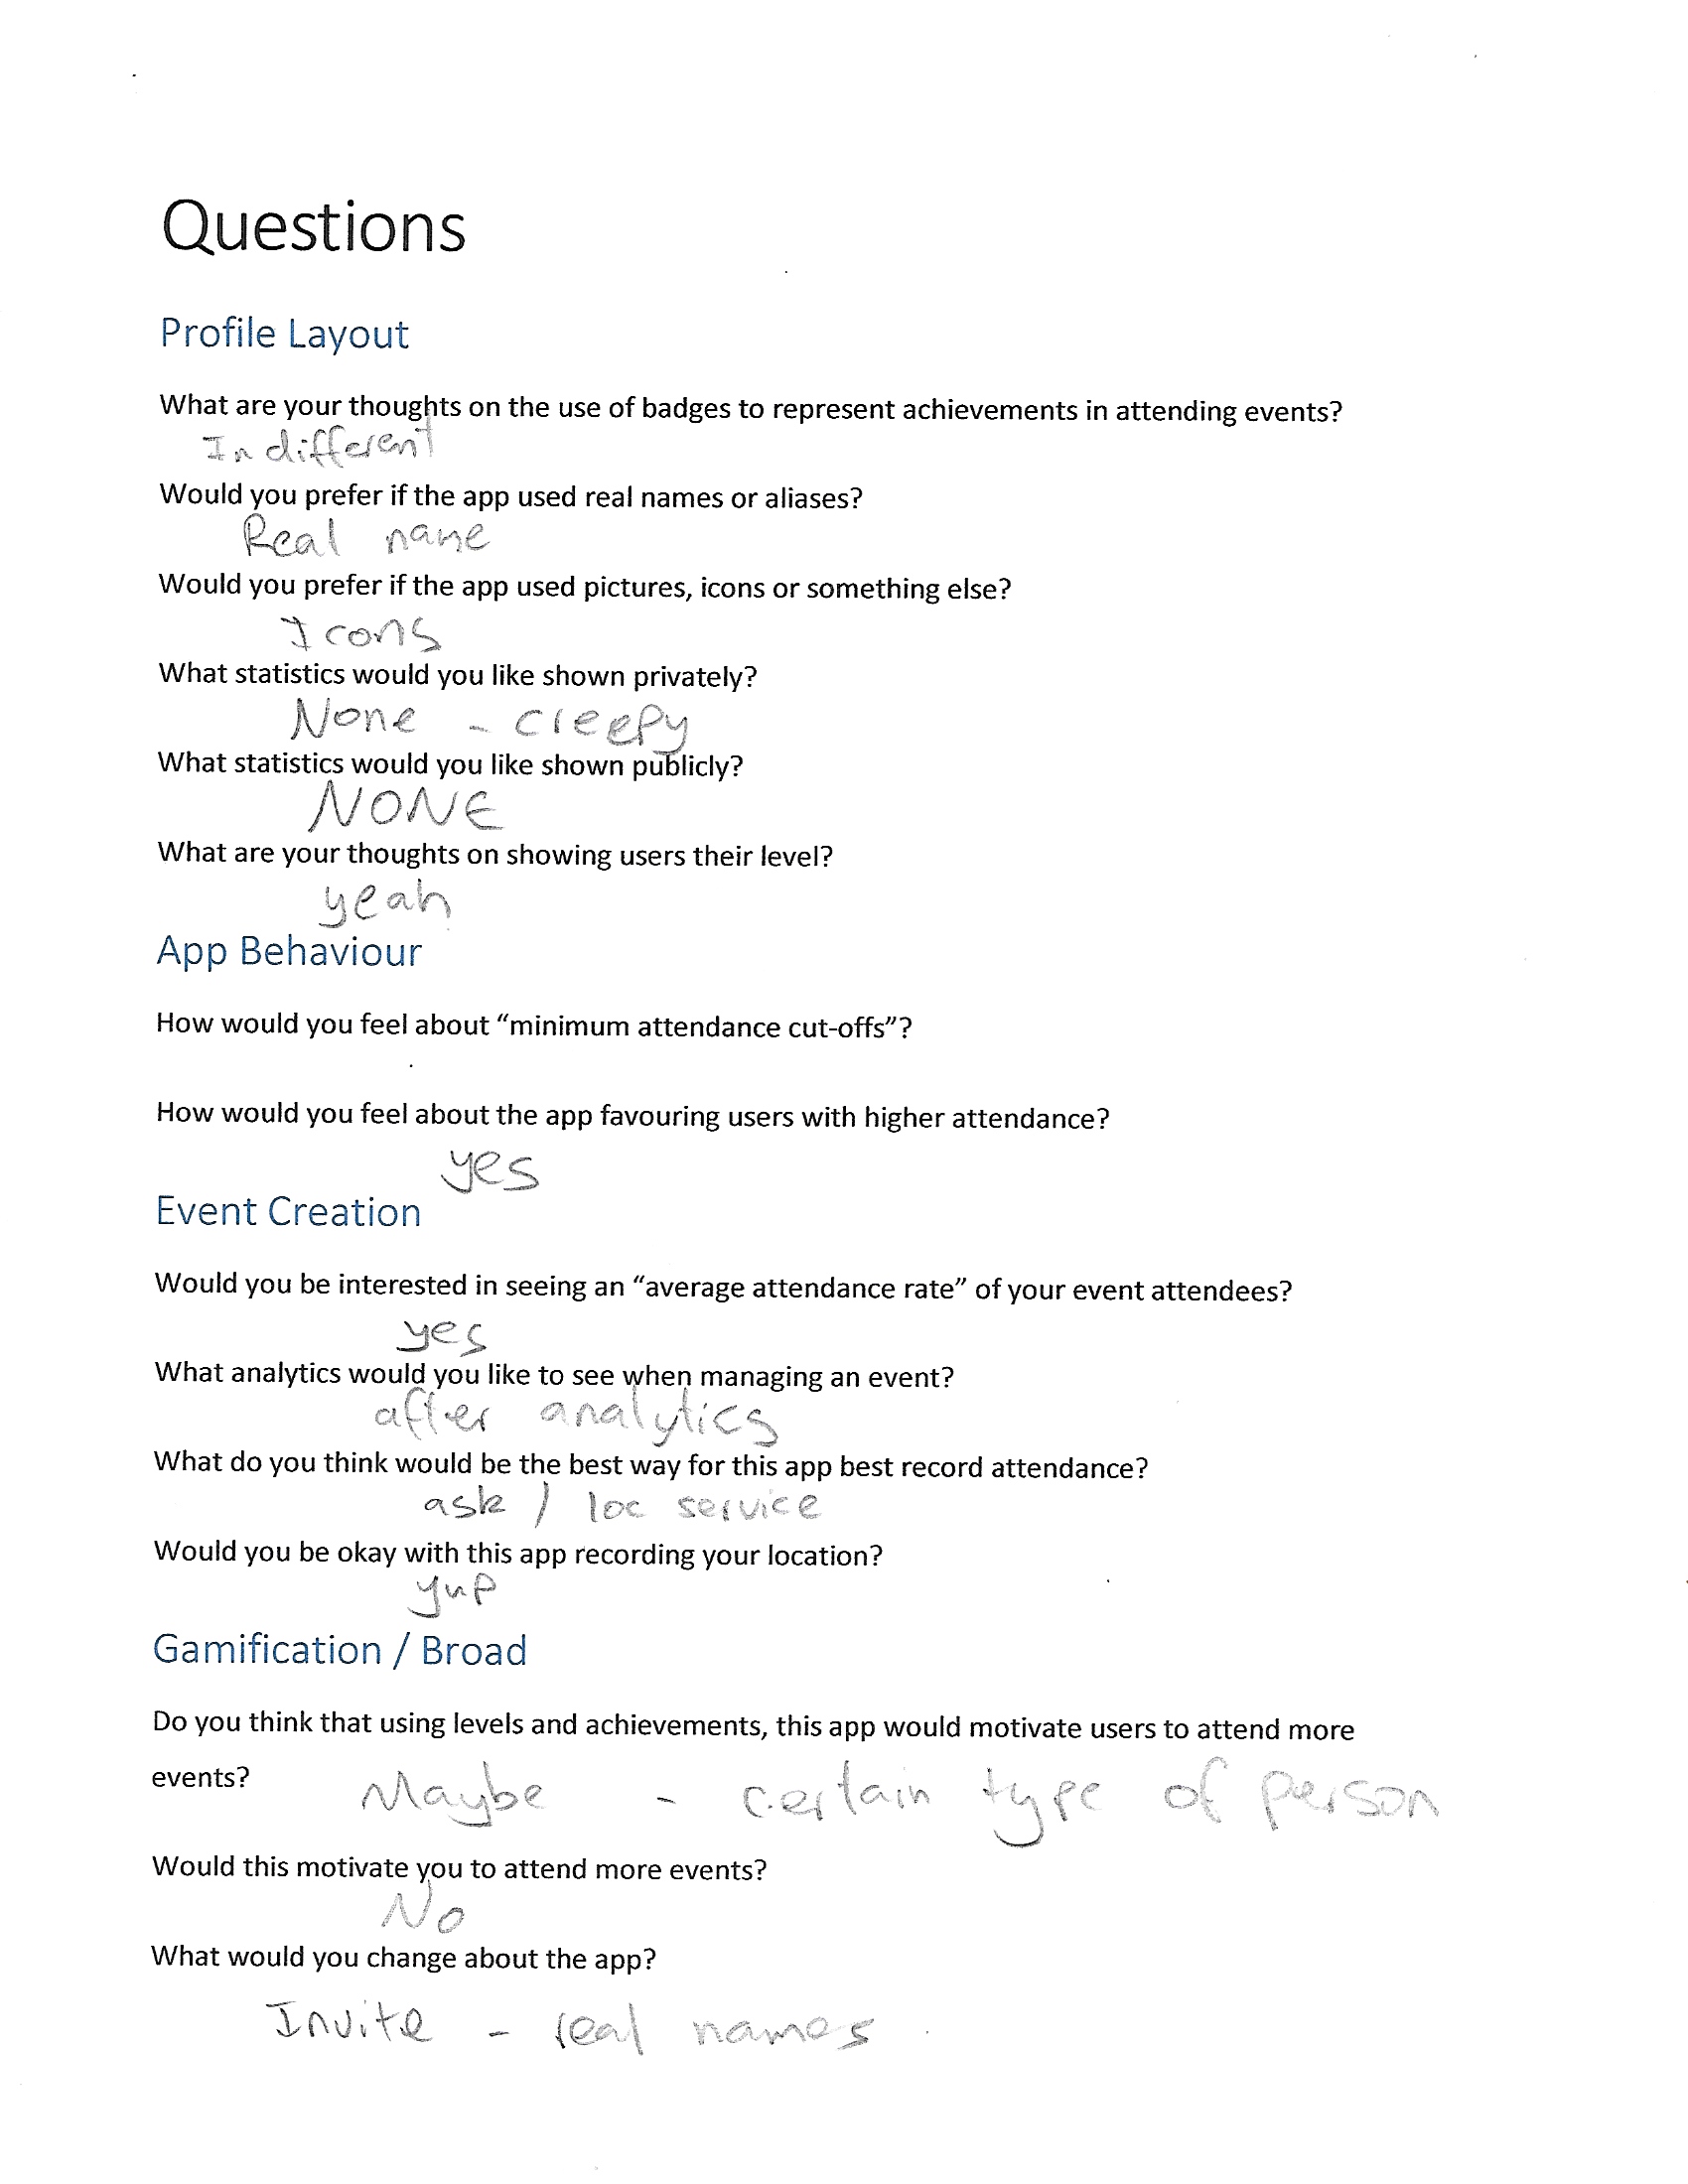 Questions
Profile Layout
What are your thoughts on the use of badges to represent achievements in attending events?
Indifferent
Would you prefer if the app used real names or aliases?
Real name
Would you prefer if the app used pictures, icons or something else?
Icons
What statistics would you like shown privately?
None - creepy
What statistics would you like shown publicly?
NONE
What are your thoughts on showing users their level?
yeah
App Behaviour
How would you feel about “minimum attendance cut-offs”?
How would you feel about the app favouring users with higher attendance?
yes
Event Creation
Would you be interested in seeing an “average attendance rate” of your event attendees?
yes
What analytics would you like to see when managing an event?
after analytics
What do you think would be the best way for this app best record attendance?
ask / loc service
Would you be okay with this app recording your location?
yup
Gamification / Broad
Do you think that using levels and achievements, this app would motivate users to attend more
events? Maybe - certain type of person
Would this motivate you to attend more events?
No
What would you change about the app?
Invite - real names